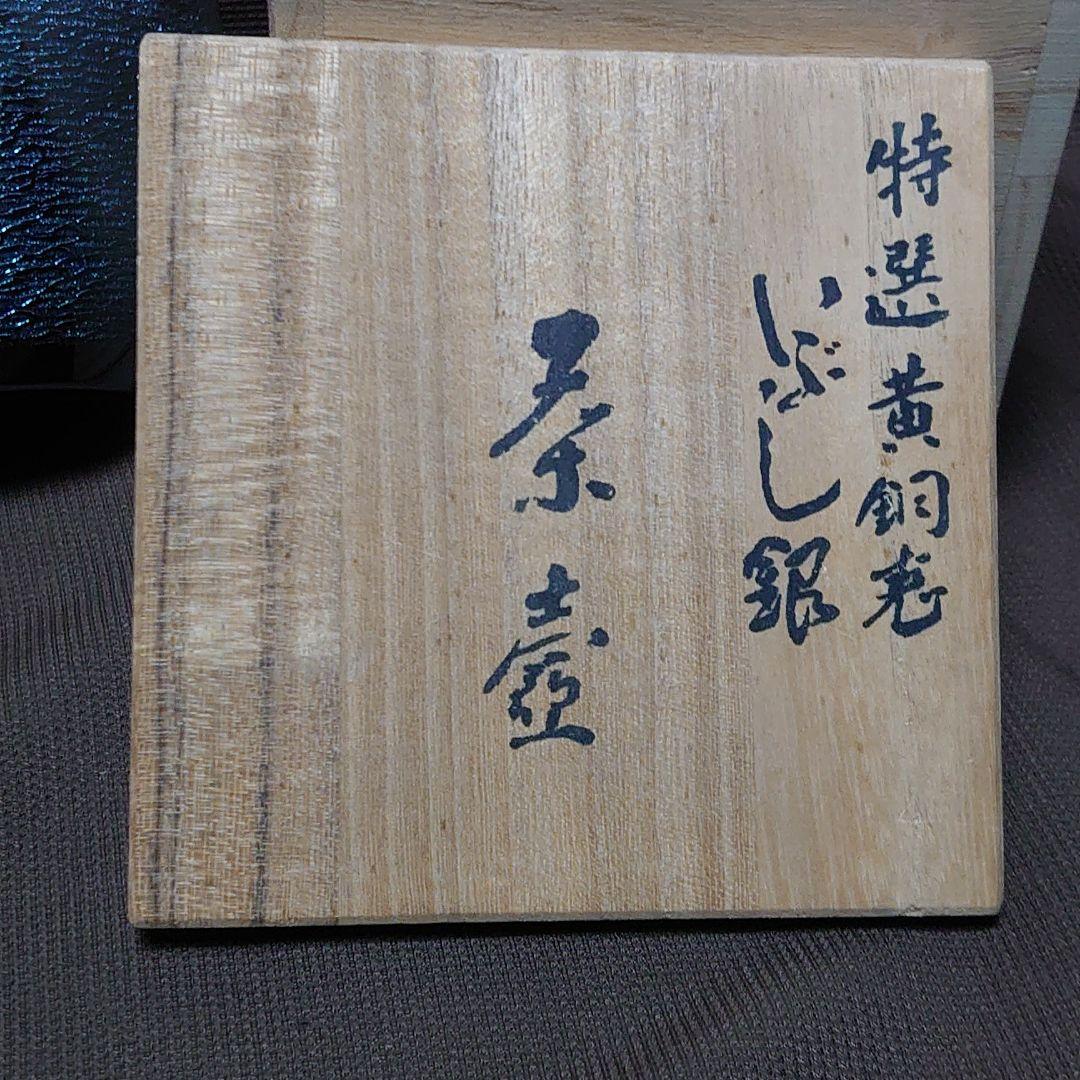 特選黄銅壱
いぶし銀
茶壺